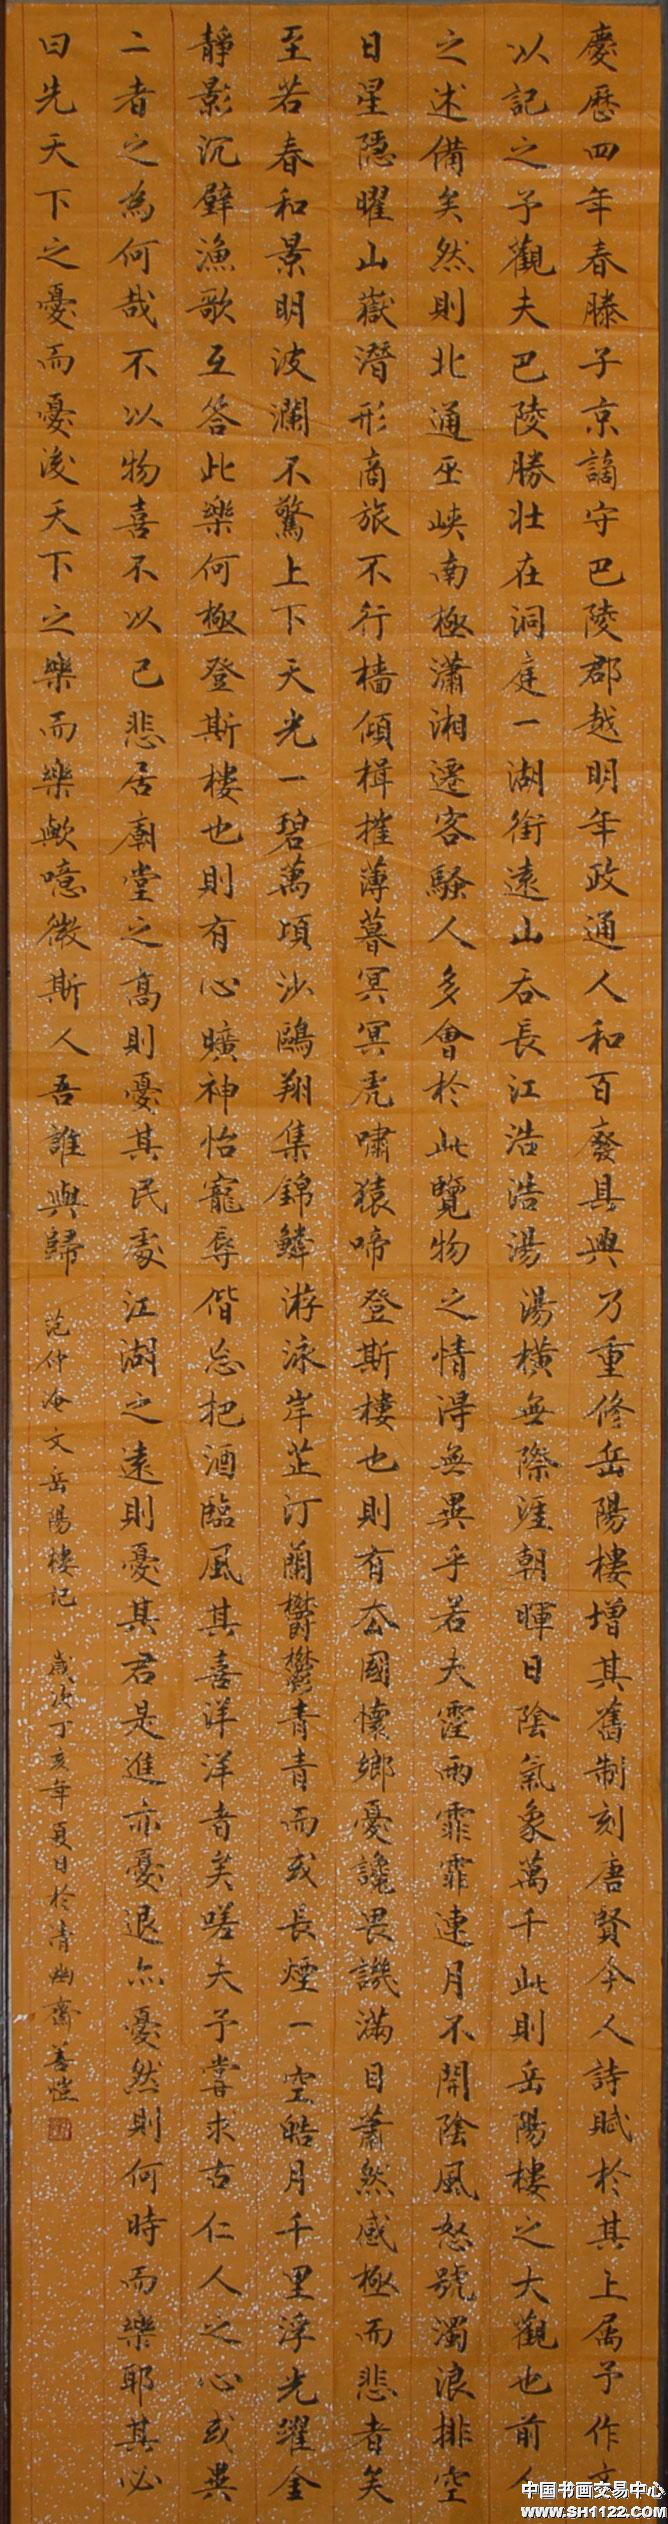 慶歷四年春滕子京謫守巴陵郡越明年政通人和百廢具興乃重修岳陽樓增其舊制刻唐賢今人詩賦於其上属予作文
以記之予觀夫巴陵勝壯在洞庭一湖銜遠山吞長江浩浩湯湯橫無際涯朝暉日陰氣象萬千此則岳陽樓之大觀也前人
之述備矣然則北通巫峽南極瀟湘遷客騷人多會於此覽物之情得無異乎若夫霪雨霏霏連月不開陰風怒號濁浪排空
日星隱曜山嶽潛形商旅不行檣傾楫摧薄暮冥冥虎嘯猿啼登斯樓也則有去國懷鄉憂讒畏譏滿目蕭然感極而悲者矣
至若春和景明波瀾不驚上下天光一碧萬頃沙鷗翔集錦鱗游泳岸芷汀蘭鬱鬱青青而或長煙一空皓月千里浮光躍金
靜影沉壁漁歌互答此樂何極登斯樓也則有心曠神怡寵辱偕忘把酒臨風其喜洋洋者矣嗟夫予嘗求古仁人之心或異
二者之為何哉不以物喜不以己悲居廟堂之高則憂其民處江湖之遠則憂其君是進亦憂退亦憂然則何時而樂耶其必
曰先天下之憂而憂後天下之樂而樂歟噫微斯人吾誰與歸 范仲淹文岳陽樓記 歲次丁亥年夏日於清幽齋善愷
中国书画交易中心
www.SH1122.com